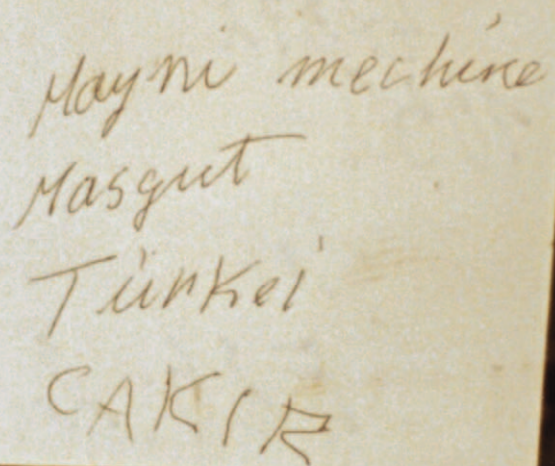 Mayni mechine
Masgut
Türkei
CAKIR